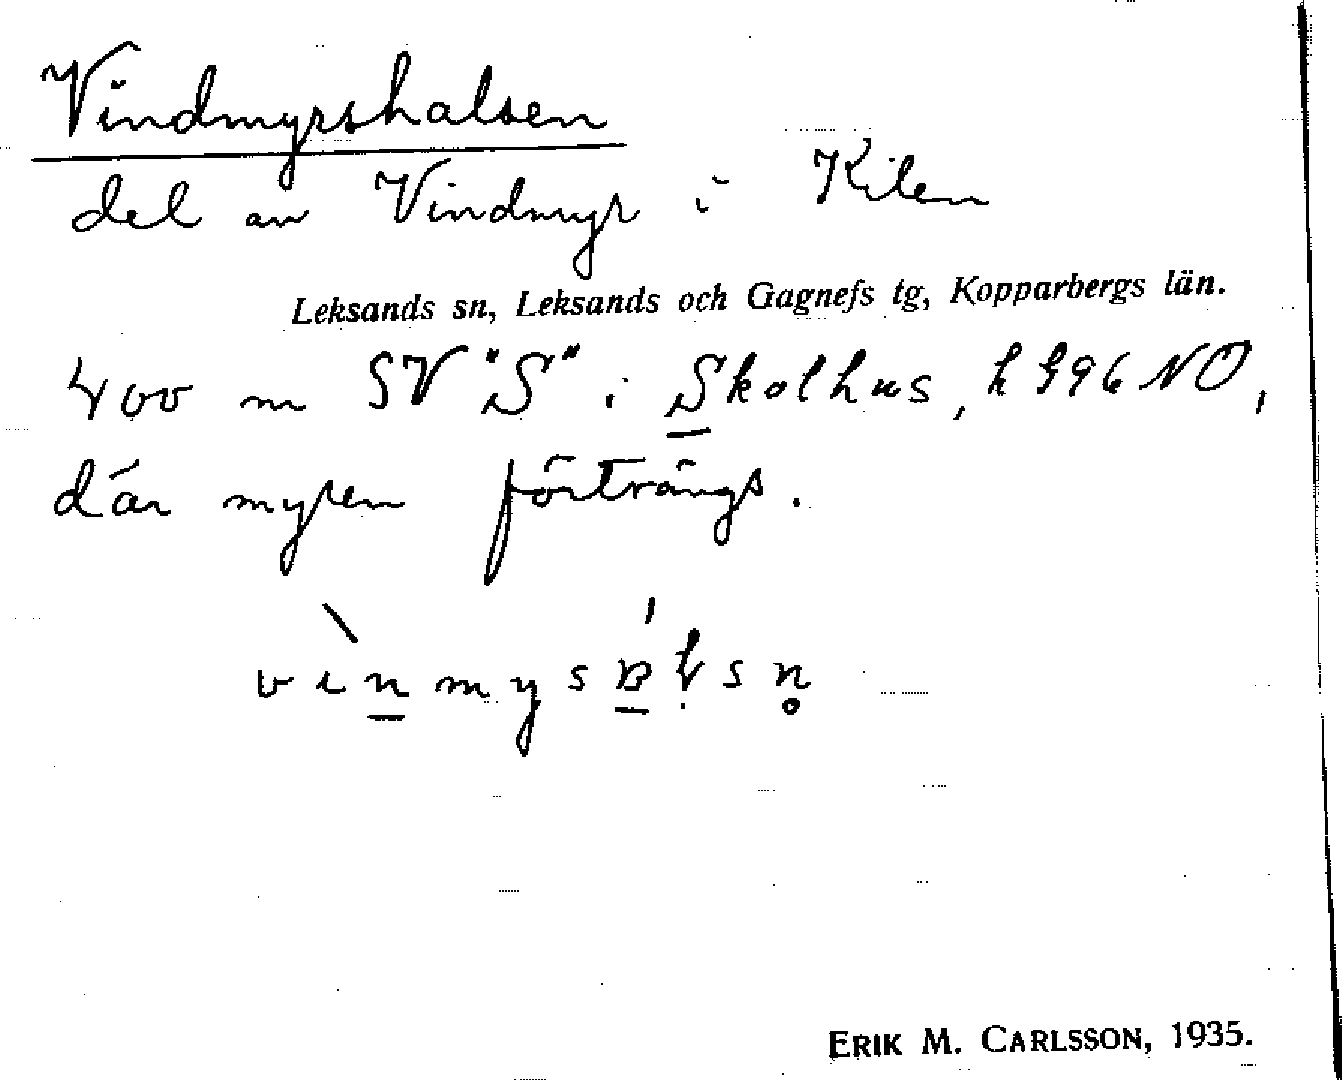 Vindmyrshalsen
del av Vindmyr i Kilen
Leksands sn, Leksands och Gagnefs tg, Kopparbergs län.
400 m SV "S" i Skolhus, k 996 NO,
där myren förträngs.
ERIK M. CARLSSON, 1935.